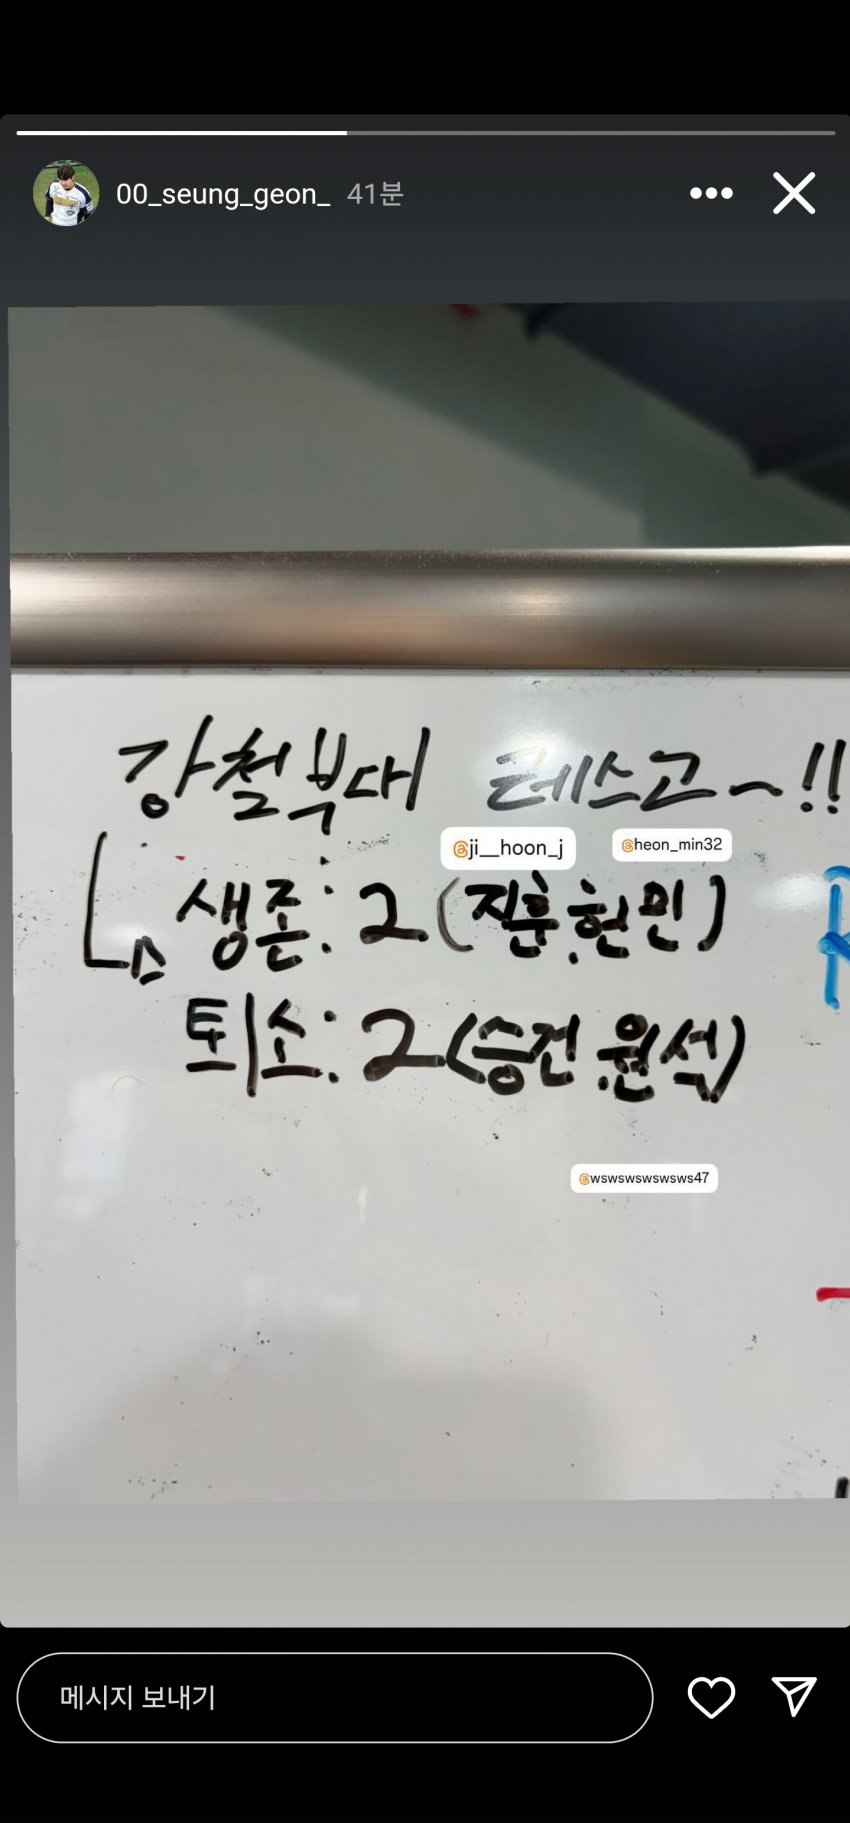 00_seung_geon_ 41분
강철부대 레스고~!!
@ji__hoon_j @heon_min32
생존: 2 (지훈, 현민)
퇴소: 2 (승건, 원석)
@wswswswswsws47
메시지 보내기